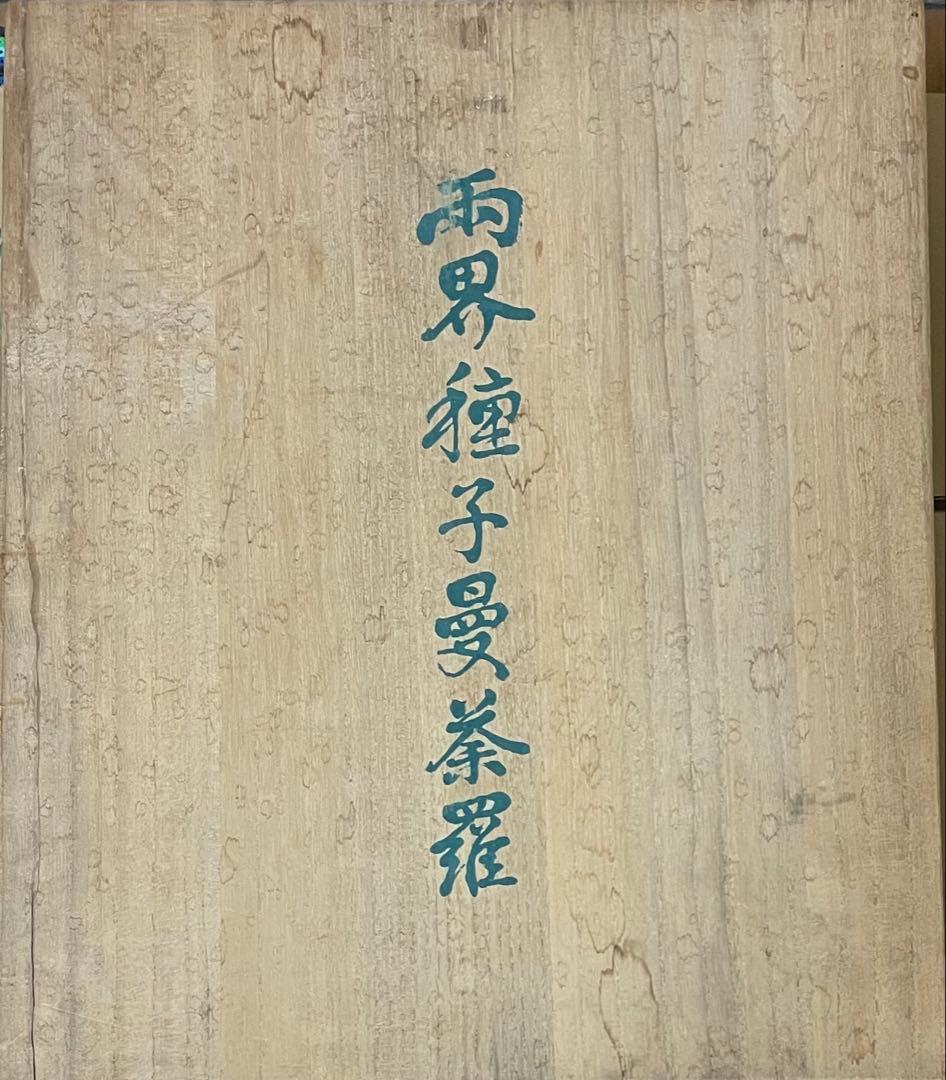 両界種子曼荼羅